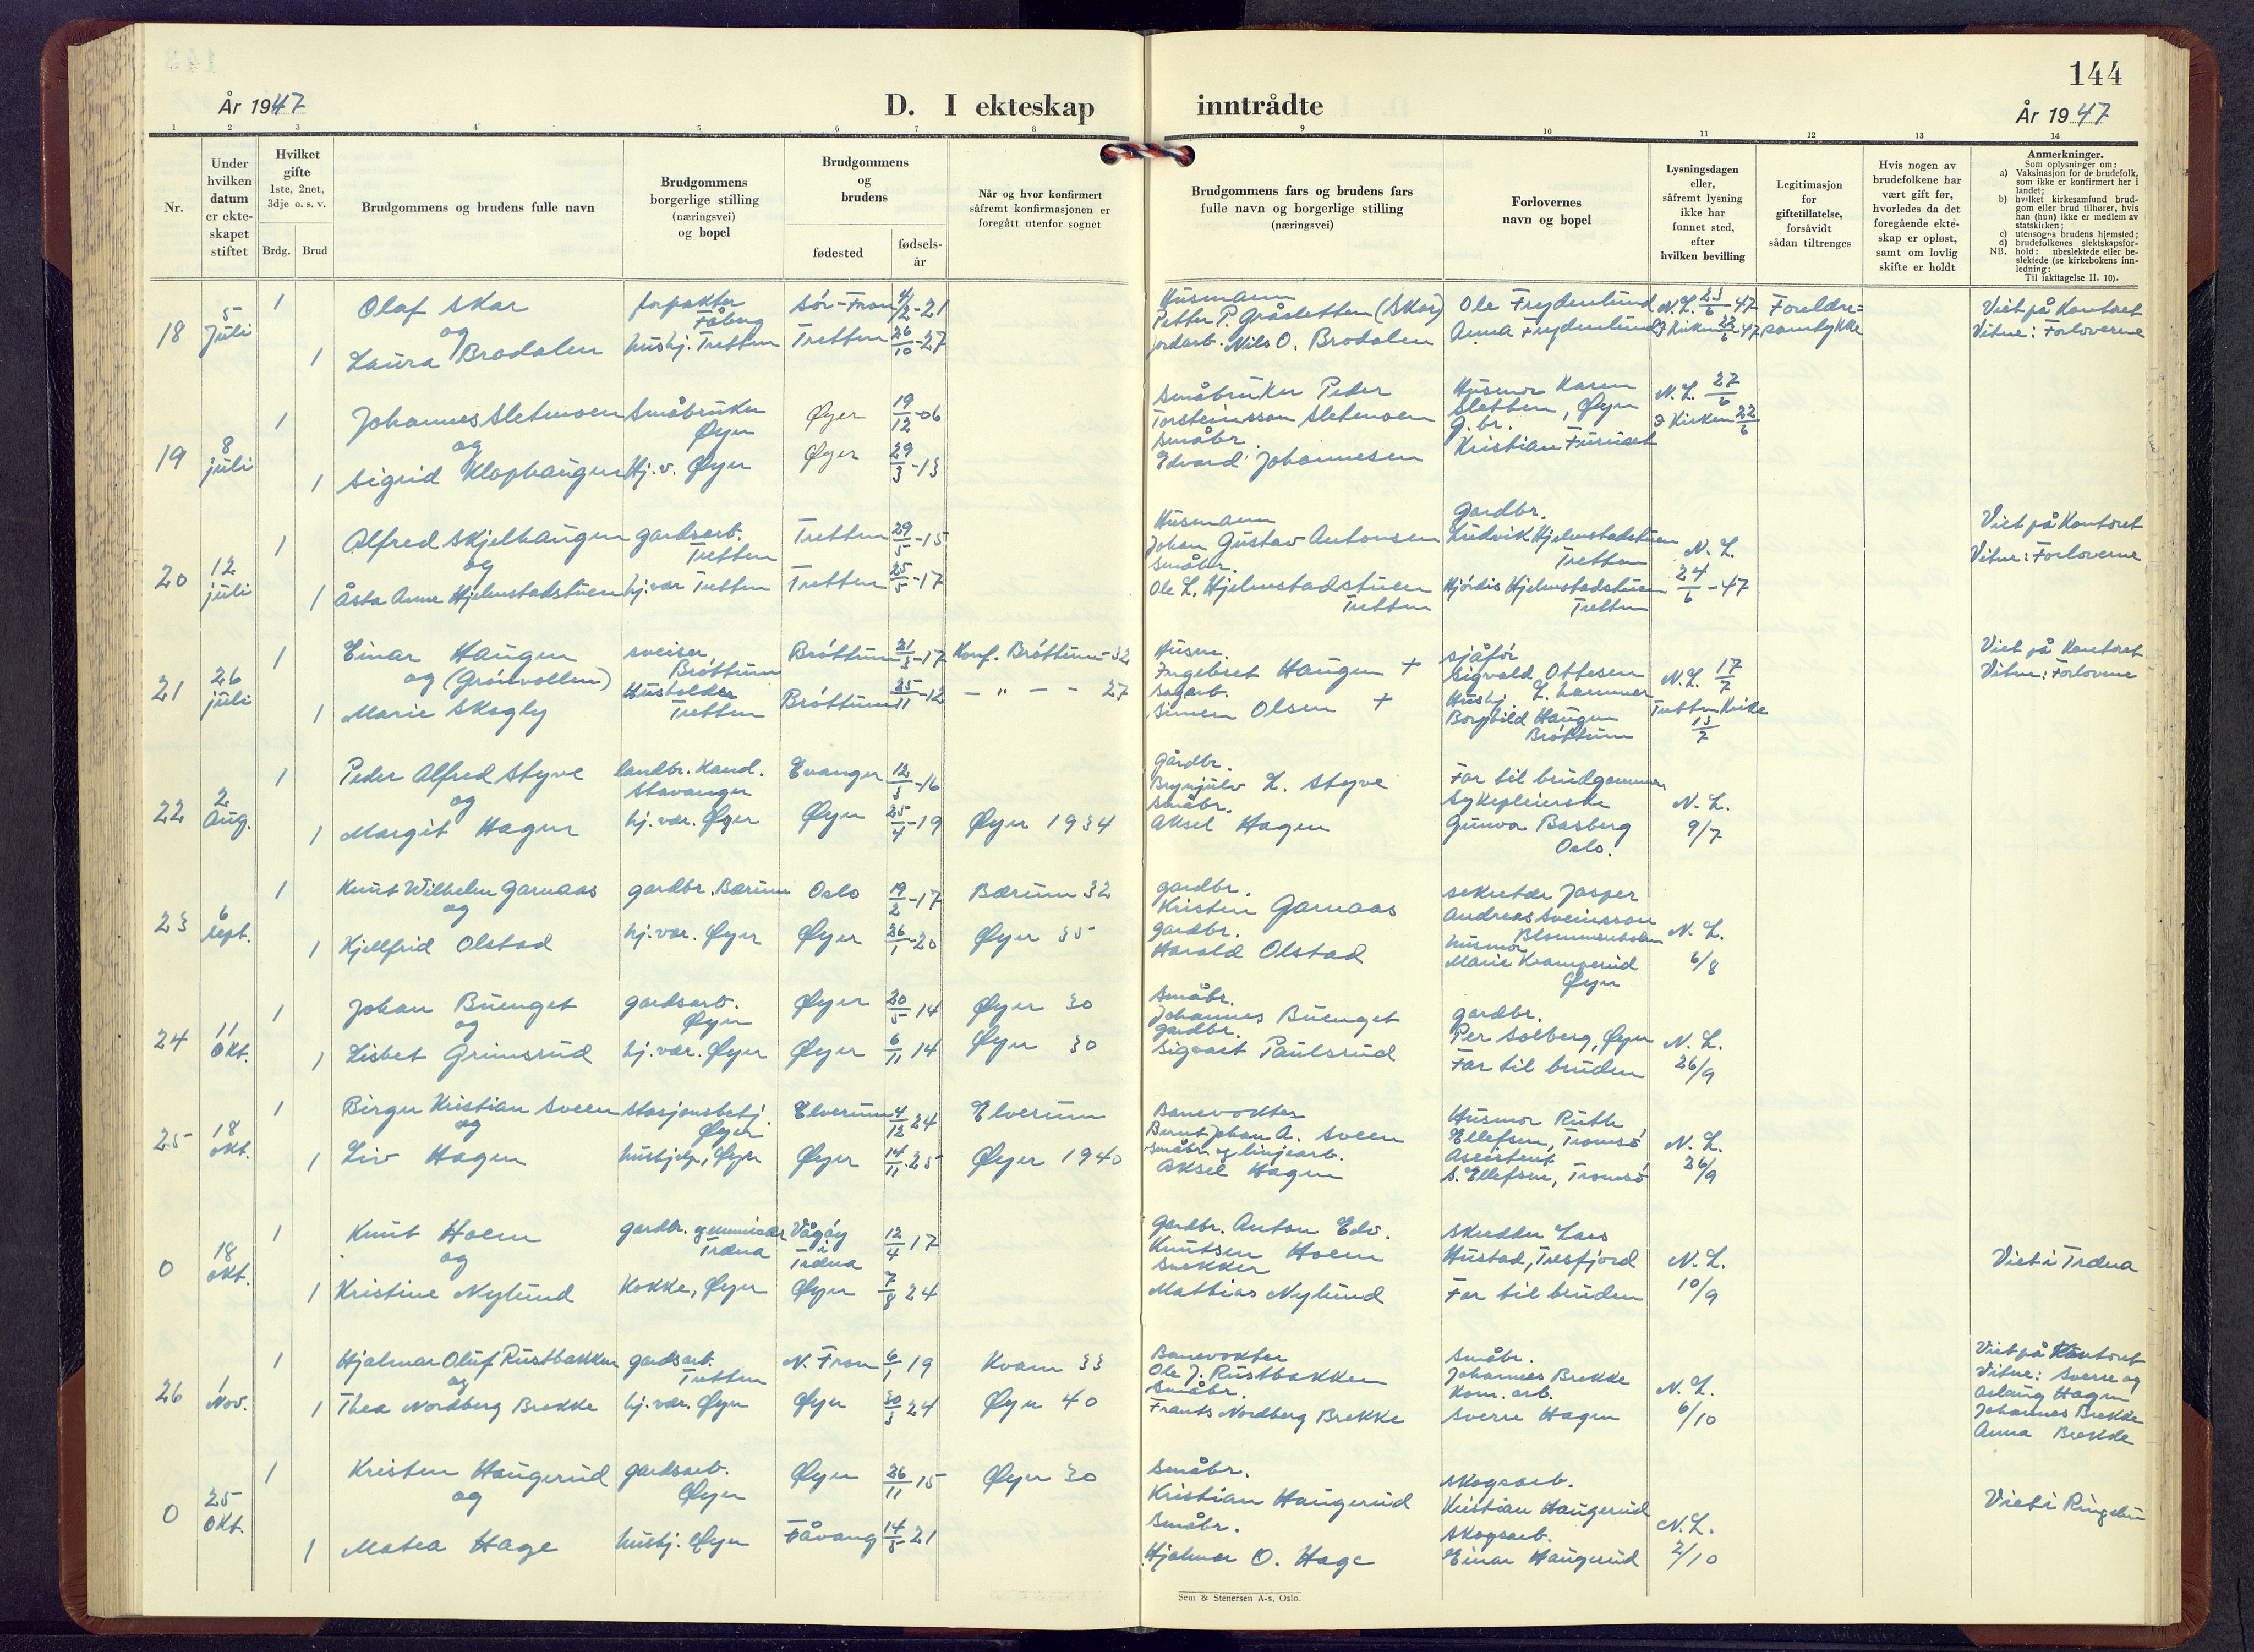 144
År 1947
D. I ekteskap inntrådte
År 1947
1 2 3 4 5 6 7 8 9 10 11 12 13 14
Nr.
Under
hvilken
datum
er ekte-
skapet
stiftet
Hvilket
gifte
1ste, 2net,
3dje o. s. v.
Brdg. Brud
Brudgommens og brudens fulle navn
Brudgommens
borgerlige stilling
(næringsvei)
og bopel
Brudgommens
og
brudens
fødested
fødsels-
år
Når og hvor konfirmert
såfremt konfirmasjonen er
foregått utenfor sognet
Brudgommens fars og brudens fars
fulle navn og borgerlige stilling
(næringsvei)
Forlovernes
navn og bopel
Lysningsdagen
eller,
såfremt lysning
ikke har
funnet sted,
efter
hvilken bevilling
Legitimasjon
for
giftetillatelse,
forsåvidt
sådan tiltrenges
Hvis nogen av
brudefolkene har
vært gift før,
hvorledes da det
foregående ekte-
skap er opløst,
samt om lovlig
skifte er holdt
Anmerkninger.
Som oplysninger om:
a) Vaksinasjon for de brudefolk,
som ikke er konfirmert her i
landet;
b) hvilket kirkesamfund brud-
gom eller brud tilhører, hvis
han (hun) ikke er medlem av
statskirken;
c) utensogns brudens hjemsted;
d) brudefolkenes slektskapsfor-
hold: ubeslektede eller be-
slektede (se kirkebokens inn-
ledning:
NB. Til iakttagelse II. 10).
18 5 juli 1 Olaf Skar
og
1 Laura Brodalen
forpakter
Fåberg
hushj. Tretten
Sör-Fron 4/2-21
Tretten 26/10-27
Husmann
Petter P. Gråsletten (Skar)
jordarb. Nils O. Brodalen
Ole Frydenlund
Anna Frydenlund
N.L. 23/6-47
I Kirken 22/6-47
Foreldre=
samtykke
Viet på Kontoret
Vitne: Forloverne
19 8 juli 1 Johannes Sletmoen
og
1 Sigrid Klophaugen
Småbruker
Øyer
Hj.v. Øyer
Øyer 19/12-06
Øyer 29/3-13
Småbruker Peder
Torsteinsson Sletmoen
Småbr.
Edvard Johannesen
Husmor Karen
Sletten, Øyer
G.br.
Kristian Furuset
N.L. 27/6
I Kirken 22/6
20 12 juli 1 Alfred Skjelhaugen
og
1 Åsta Anne Hjelmstadstuen
gardsarb.
Tretten
hj.vær Tretten
Tretten 29/5-15
Tretten 25/5-17
Husmann
Johan Gustav Antonsen
Småbr.
Ole L. Hjelmstadstuen
Tretten
Gardbr.
Ludvik Hjelmstadstuen
Tretten
Hjördis Hjelmstadstuen
Tretten
N.L.
24/6-47
Viet på Kontoret
Vitne: Forloverne
21 26 juli 1 Einar Haugen
og (Grönvollen)
1 Marie Skogly
sveiser
Bröttum
Husholder
Tretten
Bröttum 21/3-17
Bröttum 25/11-12
Konf. Bröttum-32
- " - - 27
Husm.
Ingebret Haugen +
Sagarb.
Simen Olsen +
sjåför
Sigvald Ottesen
L.hammer
Hushj.
Borghild Haugen
Bröttum
N.L. 17/7
Tretten Kirke
13/7
Viet på Kontoret
Vitne: Forlovene
22 2 Aug. 1 Peder Alfred Styve
og
1 Margit Hagen
landbr. kand.
Stavanger
hj.vær. Øyer
Evanger 12/3-16
Øyer 25/4-19
Øyer 1934
Gårdbr.
Brynjulv L. Styve
Småbr.
Aksel Hagen
Far til brudgommen
Sykepleierske
Gunvor Basberg
Oslo.
N.L.
9/7
23 6 sept. 1 Knut Wilhelm Garnaas
og
1 Kjellfrid Olstad
gardbr. Bærum
hj.vær. Øyer
Oslo 19/2-17
Øyer 26/1-20
Bærum 32
Øyer 35
gardbr.
Kristen Garnaas
gardbr.
Harald Olstad
sekretær Jasper
Andreas Sveinsson
Blommenholm
husmor
Marie Kramperud
Øyer
N.L.
6/8
24 11 Okt. 1 Johan Buenget
og
1 Lisbet Grimsrud
gardsarb.
Øyer
hj.vær. Øyer
Øyer 20/5 14
Øyer 6/11 14
Øyer 30
Øyer 30
Småbr.
Johannes Buenget
gardbr.
Sigvart Paulsrud
gardbr.
Per Solberg, Øyer
Far til bruden
N.L.
26/9
25 18 okt. 1 Birger Kristian Sveen
og
1 Liv Hagen
stasjonsbetj.
Øyer
hushjelp, Øyer
Elverum 4/12 24
Øyer 14/11-25
Elverum
Øyer 1940
Banevokter
Bernt Johan A. Sveen
småbr. og linjearb.
Aksel Hagen
Husmor Ruth
Ellefsen, Tromsö
Assistent
S. Ellefsen, Tromsö
N.L.
26/9
0 18 okt. 1 Knut Hoem
og
1 Kristine Nylund
gardbr.
Træna
Kokke, Øyer
Vågöy
i
Træna 12/4 17
Øyer 7/8 24
Gardbr. Anton Edv.
Knutsen Hoem
Snekker
Mathias Nylund
Skredder Lars
Hustad, Tresfjord
Far til bruden
N.L.
10/9
Viet i Træna
26 1 Nov. 1 Hjalmar Oluf Rustbakken
og
1 Thea Nordberg Brekke
gardsarb.
Tretten
hj.vær. Øyer
N. Fron 6/1 19
Øyer 30/3 24
Kvam 33
Øyer 40
Banevokter
Ole J. Rustbakken
Småbr.
Frants Nordberg Brekke
Småbr.
Johannes Brekke
Kom. arb.
Sverre Hagen
N.L.
6/10
Viet på Kontoret
Vitne: Sverre og
Aslaug Hagen
Johannes Brekke
Anna Brekke
0 25 Okt. 1 Kristen Haugerud
og
1 Matea Hage
gardsarb.
Øyer
hushj. Øyer
Øyer 26/11 15
Fåvang 14/5 21
Øyer 30
Småbr.
Kristian Haugerud
Småbr.
Hjalmar O. Hage
skogsarb.
Kristian Haugerud
skogsarb.
Einar Haugerud
N.L.
2/10
Viet i Ringebu
Sem & Stenersen A-s, Oslo.